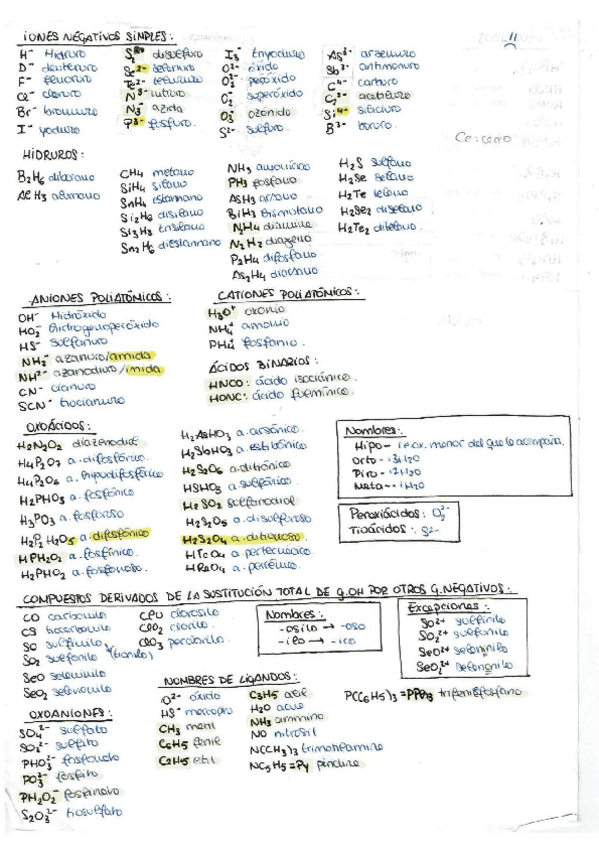 IONES NEGATIVOS SIMPLES:
H⁻ Hidruro
D⁻ deuteruro
F⁻ fluoruro
Cl⁻ cloruro
Br⁻ bromuro
I⁻ yoduro
disulfuro
Se²⁻ seleniuro
Te²⁻ telururo
N³⁻ nitruro
N₃⁻ azida
P³⁻ fosfuro
I₃⁻ triyoduro
O²⁻ óxido
O₂²⁻ peróxido
O₂⁻ superóxido
O₃⁻ ozónido
S²⁻ sulfuro
As³⁻ arseniuro
Sb³⁻ antimoniuro
C⁴⁻ carburo
C₂²⁻ acetiluro
Si⁴⁻ siliciuro
B³⁻ boruro
HIDRUROS:
B₂H₆ diborano
AlH₃ alumano
CH₄ metano
SiH₄ silano
SnH₄ estannano
Si₂H₆ disilano
Si₃H₈ trisilano
Sn₂H₆ diestannano
NH₃ amoníaco
PH₃ fosfano
AsH₃ arsano
BiH₃ bismutano
N₂H₄ diamina
N₂H₂ diazeno
P₂H₄ difosfano
As₂H₄ diarsano
H₂S sulfano
H₂Se selano
H₂Te telano
H₂Se₂ diselano
H₂Te₂ ditelano
ANIONES POLIATÓMICOS:
OH⁻ Hidróxido
HO₂⁻ hidrogenoperóxido
HS⁻ sulfanuro
NH₂⁻ azanuro/amida
NH²⁻ azanodiuro/imida
CN⁻ cianuro
SCN⁻ tiocianuro
CATIONES POLIATÓMICOS:
H₃O⁺ oxonio
NH₄⁺ amonio
PH₄⁺ fosfonio
ÁCIDOS BINARIOS:
HNCO: ácido isociánico
HONC: ácido fulmínico
OXOÁCIDOS:
H₂N₂O₂ diazenodiol
H₄P₂O₇ a. difosfórico
H₄P₂O₆ a. hipodifosfórico
H₂PHO₃ a. fosfónico
H₃PO₃ a. fosforoso
H₂P₂H₂O₅ a. difosfónico
HPH₂O₂ a. fosfínico
H₂PHO₂ a. fosfonoso
H₂AsHO₃ a. arsónico
H₂SbHO₃ a. estibónico
H₂S₂O₆ a. ditiónico
HSHO₃ a. sulfónico
H₂SO₂ sulfanodiol
H₂S₂O₅ a. disulfuroso
H₂S₂O₄ a. ditionoso
HTcO₄ a. pertecnecico
HReO₄ a. perrénico
Nombres:
Hipo – 
Orto –
Piro –
Meta –
Peroxiácidos: O₂²⁻
Tioácidos: S²⁻
COMPUESTOS DERIVADOS DE LA SUSTITUCIÓN TOTAL DE g.OH POR OTROS G.NEGATIVOS:
CO carbonilo
CS tiocarbonilo
SO sulfinilo
SO₂ sulfonilo
SeO seleninilo
SeO₂ selenonilo
ClO clorosilo
ClO₂ clorilo
ClO₃ perclorilo
Nombres:
-osilo → -oso
-ilo → -ico
Excepciones:
SO²⁺ sulfinilo
SO₂²⁺ sulfonilo
SeO²⁺ seleninilo
SeO₂²⁺ selenonilo
OXOANIONES:
SO₄²⁻ sulfato
SO₃²⁻ sulfito
PHO₃²⁻ fosfonato
PO₃³⁻ fosfito
PH₂O₂⁻ fosfinato
S₂O₃²⁻ tiosulfato
NOMBRES DE LIGANDOS:
O²⁻ óxido
HS⁻ mercapto
CH₃ metil
C₆H₅ fenil
C₂H₅ etil
C₃H₅ alil
H₂O acua
NH₃ ammino
NO nitrosil
N(CH₃)₃ trimetilamina
NC₅H₅=Py piridina
P(C₆H₅)₃=PPh₃ trifenilfosfano